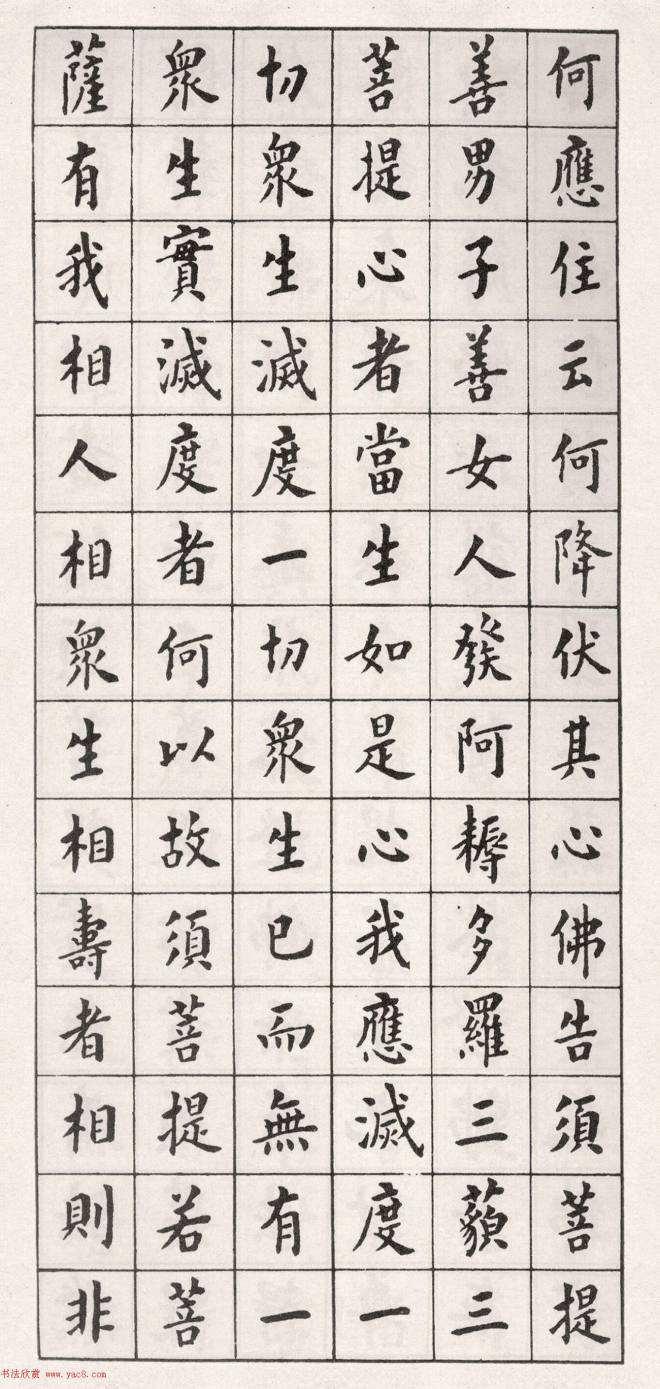 何應住云何降伏其心佛告須菩提
善男子善女人發阿耨多羅三藐三
菩提心者當生如是心我應滅度一
切衆生滅度一切衆生已而無有一
衆生實滅度者何以故須菩提若菩
薩有我相人相衆生相壽者相則非
书法欣赏 www.yac8.com